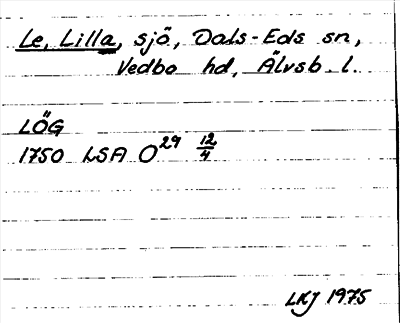 Le, Lilla, sjö, Dals-Eds sn,
Vedbo hd, Älvsb. l.
LÖG
1750 LSA O29 12/4
LKJ 1975